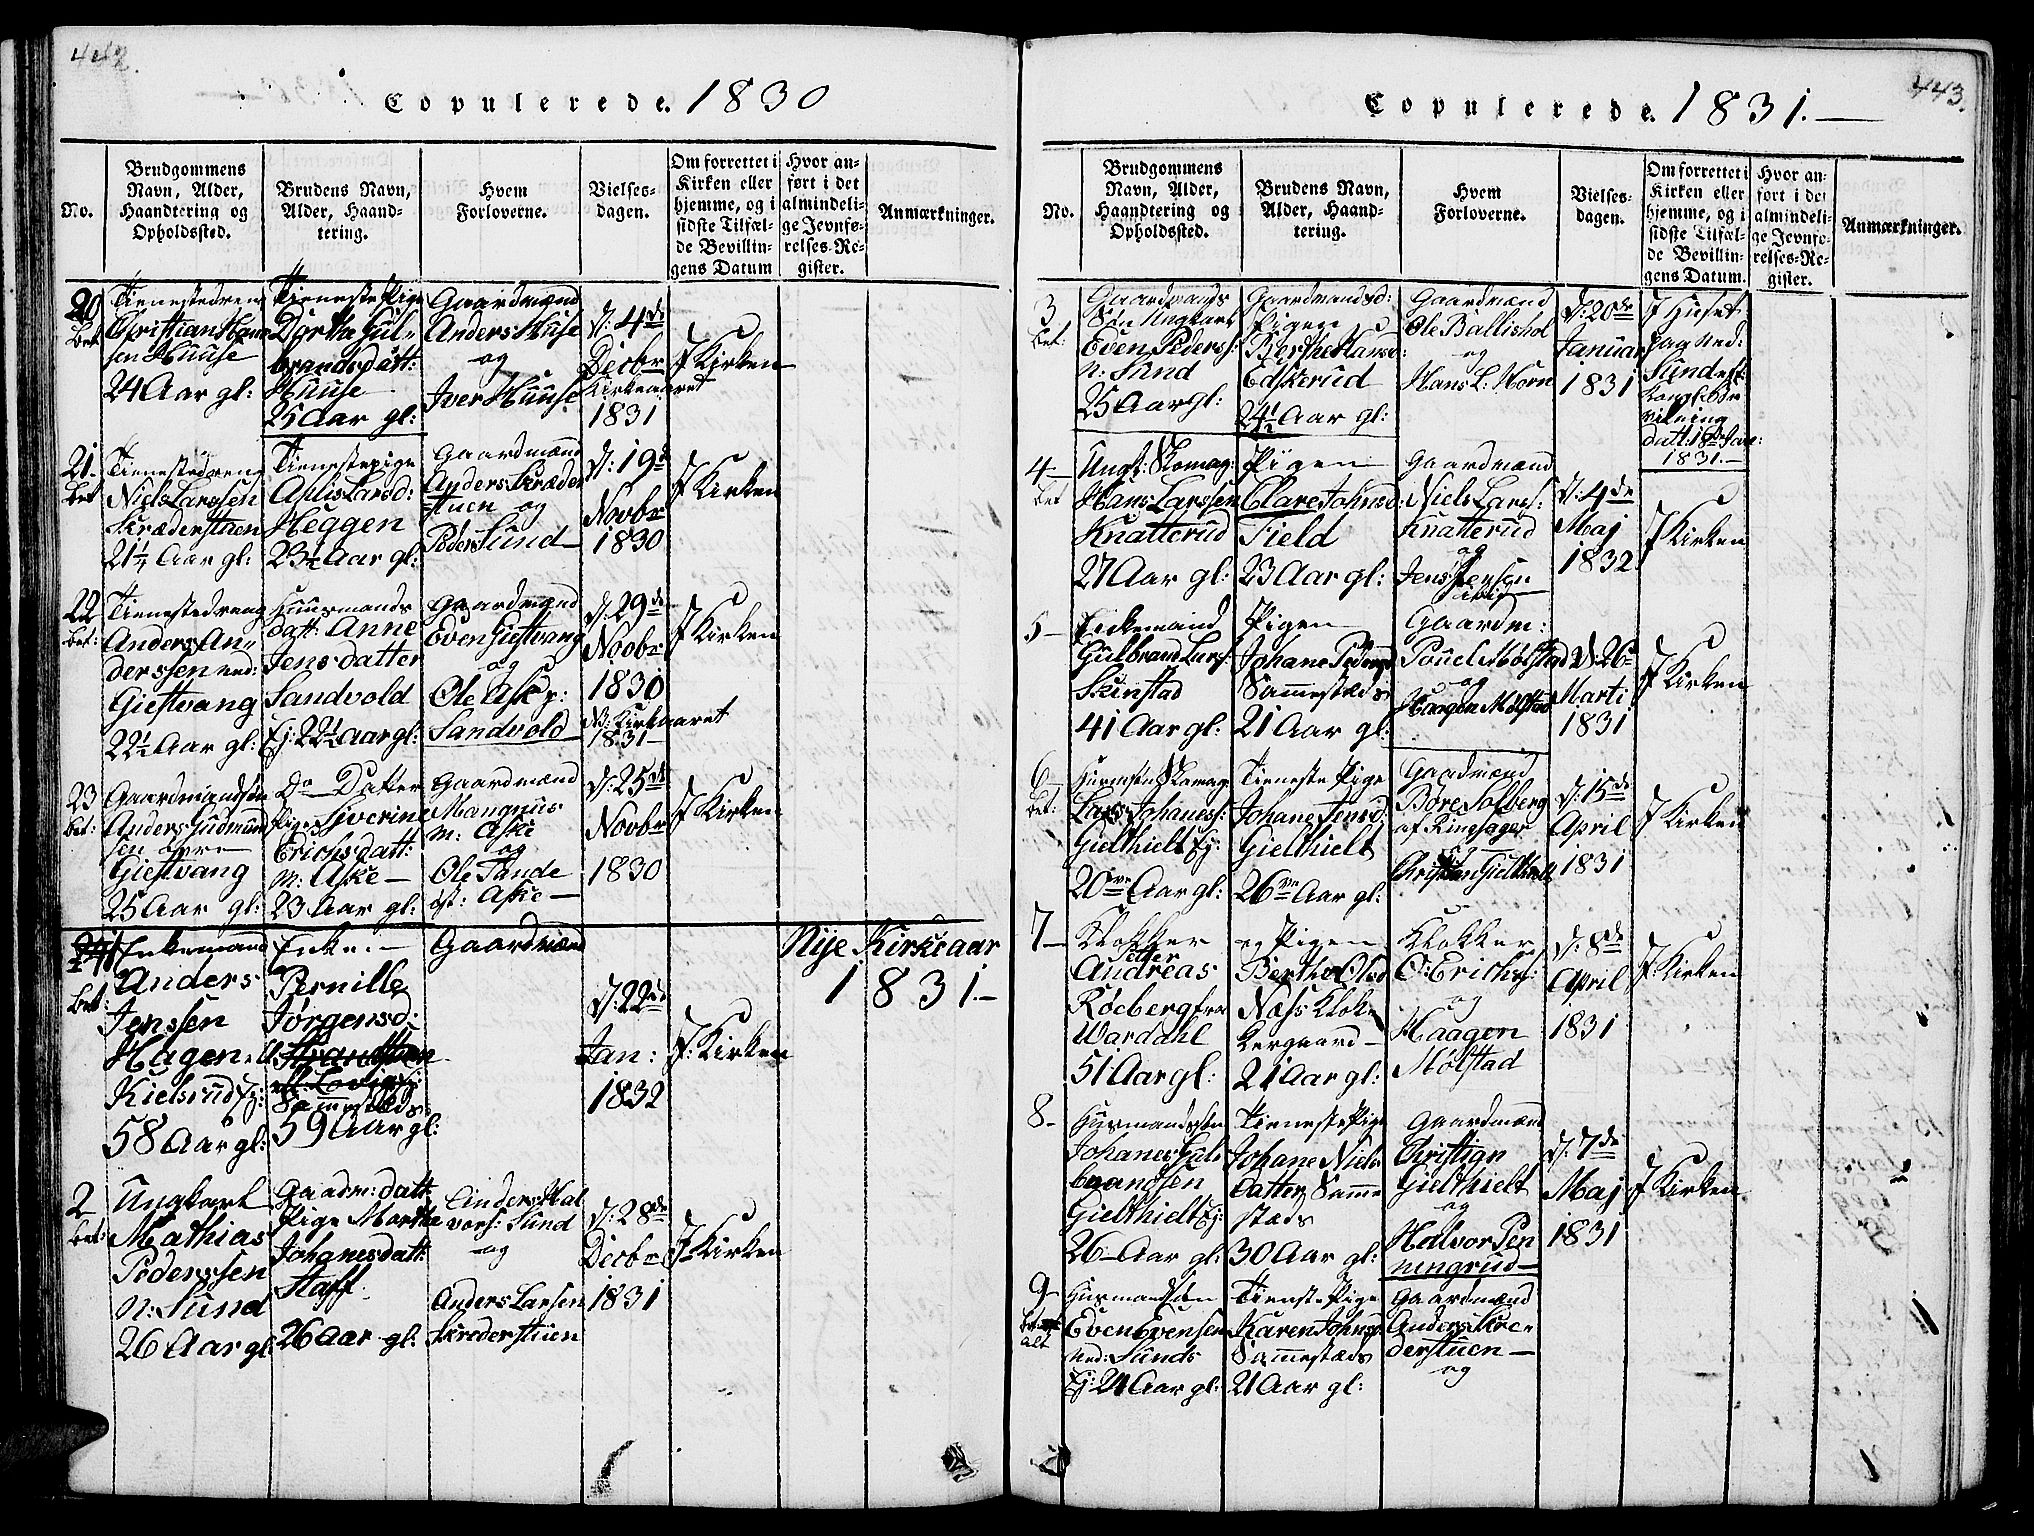 442.
Copulerede. 1830
No.
Brudgommens
Navn, Alder,
Haandtering og
Opholdssted.
Brudens Navn,
Alder, Haand-
tering.
Hvem
Forloverne.
Vielses-
dagen.
Om forrettet i
Kirken eller
hjemme, og i
sidste Tilfæl-
de Bevillin-
gens Datum
Hvor an-
ført i det
almindeli-
ge Jevnfø-
relses-Re-
gister.
Anmærkninger.
20
bet
Tienestedreng
Christian Han
sen Huuse
24 Aar gl:
Tieneste Pige
Dorthe Gul-
brandsdatt:
Huuse
25 Aar gl:
Gaardmænd
Anders Huse
og
Iver Huuse
d: 4de
Decbr
Kirkeaaret
1831
I Kirken
21.
bet
Tienestedreng
Niels Larssen
Skræderstuen
21 1/4 Aar gl:
Tienestepige
Aplis Larsd:
Heggen
23 1/2 Aar gl:
Gaardmænd
Anders Skræder
stuen og
Peder Sund
d: 19d
Novbr
1830
I Kirken
22
bet:
Tienestedreng
Anders An-
derssen ned:
Gietvang
22 1/2 Aar gl:
Huusmands
datt: Anne
Jensdatter
Sandvold
Ej: 22 1/2 Aar gl:
Gaardmænd
Even Gistvang
og
Ole Aske p:
Sandvold
d: 29de
Novbr
1830
NB: Kirkeaaret
1831
I Kirken
23
bet:
Gaardmandsøn
Anders Gudmund
sen øvre
Gietvang
25 Aar gl:
Do Datter
Pige Siverine
Erichsdatt:
m: Aske
23 Aar gl:
Gaardmænd
Mangnus
m: Aske
og
Ole Sande
øst: Aske
d: 25de
Novbr
1830
I Kirken
Nye Kirkeaar
1831.
1
bet:
Enkemand
Anders
Jenssen
Hagen
Kielsrud Ej:
58 Aar gl:
Enke.
Pernille
Jørgensd:
Sammesteds
59 Aar gl:
Gaardmænd
d: 22de
Jan:
1832
I Kirken
2
bet:
Ungkarl
Mathias
Pederssen
n: Sund
26 Aar gl:
Gaardm: datt:
Pige Marthe
Johanesdatt:
Staff
26 Aar gl:
Anders Hal
vors: Sund
og
Anders Larsen
Skrederstuen
d: 28de
Decbr
1831
I Kirken
443.
Copulerede. 1831.
No.
Brudgommens
Navn, Alder,
Haandtering og
Opholdssted.
Brudens Navn,
Alder, Haand-
tering.
Hvem
Forloverne.
Vielses-
dagen.
Om forrettet i
Kirken eller
hjemme, og i
sidste Tilfæl-
de Bevillin-
gens Datum.
Hvor an-
ført i det
almindeli-
ge Jevnfø-
relses-Re-
gister.
Anmærkninger.
3
bet:
Gaardmands
Søn Ungkarl
Even Peders:
n: Sund
25 Aar gl:
Gaardmandsd:
Pigen
Berthe Hansd:
Edskerud
24 1/2 Aar gl:
Gaardmænd
Ole Ballishol
og
Hans L: Horn
d: 20de
Januar
1831
I Huset
paa ned:
Sund ef:
Kongl: Be
vilning
datt: 18de Jan:
1831.
4
bet
Ungk: Skomag:
Hans Larssen
Knatterud
27 Aar gl:
Pigen
Clare Johnsd:
Field
23 Aar gl:
Gaardmænd
Niels Lars:
Knatterud
og
Jens Jensen
ibid
d: 4de
Maj
1832
I Kirken
5
Enkemand
Gulbrand Lars:
Skinstad
41 Aar gl:
Pigen
Johane Pedersd
Sammesteds
21 Aar gl:
Gaardm:
Pouel Mølstad
og
Haagen Mølstad
d: 26
Marti
1831
I Kirken
6
bet:
Husmsøn Skomag
Lars Johanes:
Gielthielt Ej:
20ve Aar gl:
Tieneste Pige
Johane Jensd:
Gielthielt
26ve Aar gl:
Gaardmænd
Børe Solberg
af Ringsager
og
Christian Gielthielt
d: 15de
April
1831
I Kirken
7
Klokker
Petter
Andreas
Røeberg fra
Wardahl
51 Aar gl:
og Pigen
Berthe Olsd
Næss Klok-
kergaard
21 Aar gl:
Klokker
O: Erichs:
og
Haagen
Mølstad
d: 8de
April
1831
I Kirken
8
Husmandsøn
Johanes Gul-
brandsen
Gielthielt Ej:
26 Aar gl:
Tieneste Pige
Johane Niels
datter Samme
steds
30 Aar gl:
Gaardmænd
Christian
Gielthielt
og
Halvor Pen
ningrud
d: 7de
Maj
1831
I Kirken
9
bet
alt
Husmandsøn
Even Evensen
ned: Sunds
Ej: 24 Aar gl:
Tieneste Pige
Karen Johnsd
Sammesteds
21 Aar gl:
Gaardmænd
Anders Skre-
derstuen
og